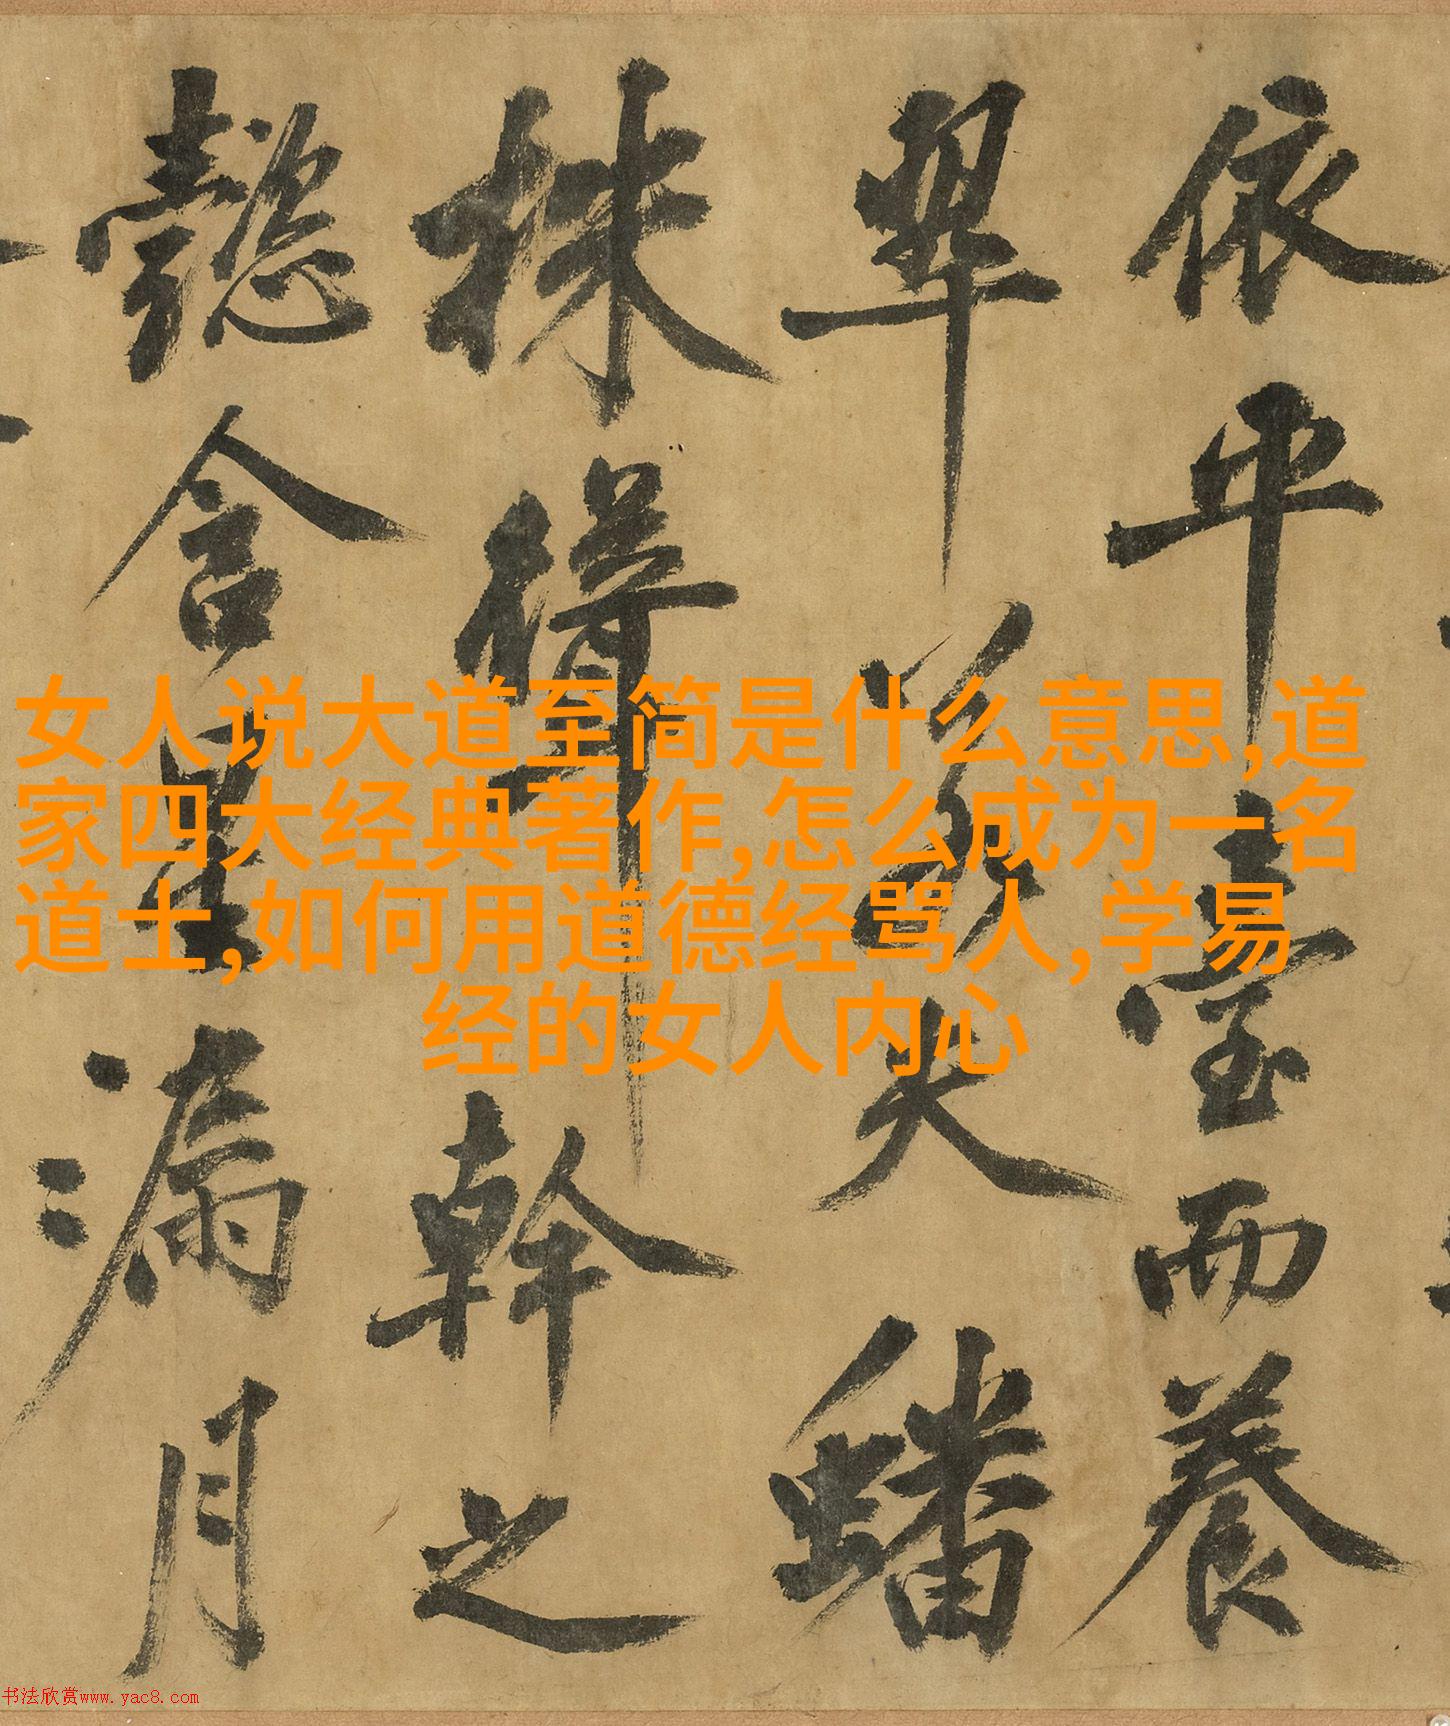 依平臺而養
翠夫蟠
林幹之
懿含星漏月
女人说大道至简是什么意思,道
家四大经典著作,怎么成为一名
道士,如何用道德经骂人,学易
经的女人内心
书法欣赏www.yac8.com